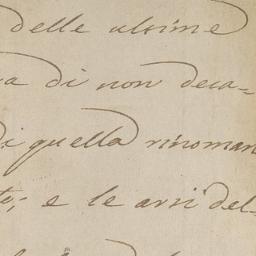 delle ultime
a di non deca=
di quella rinoman
te; e le arti del=